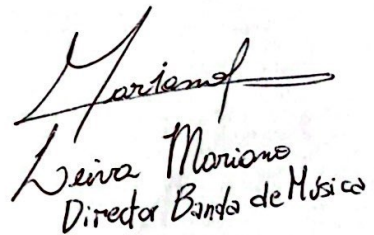 Marianof
Leiva Mariano
Director Banda de Música